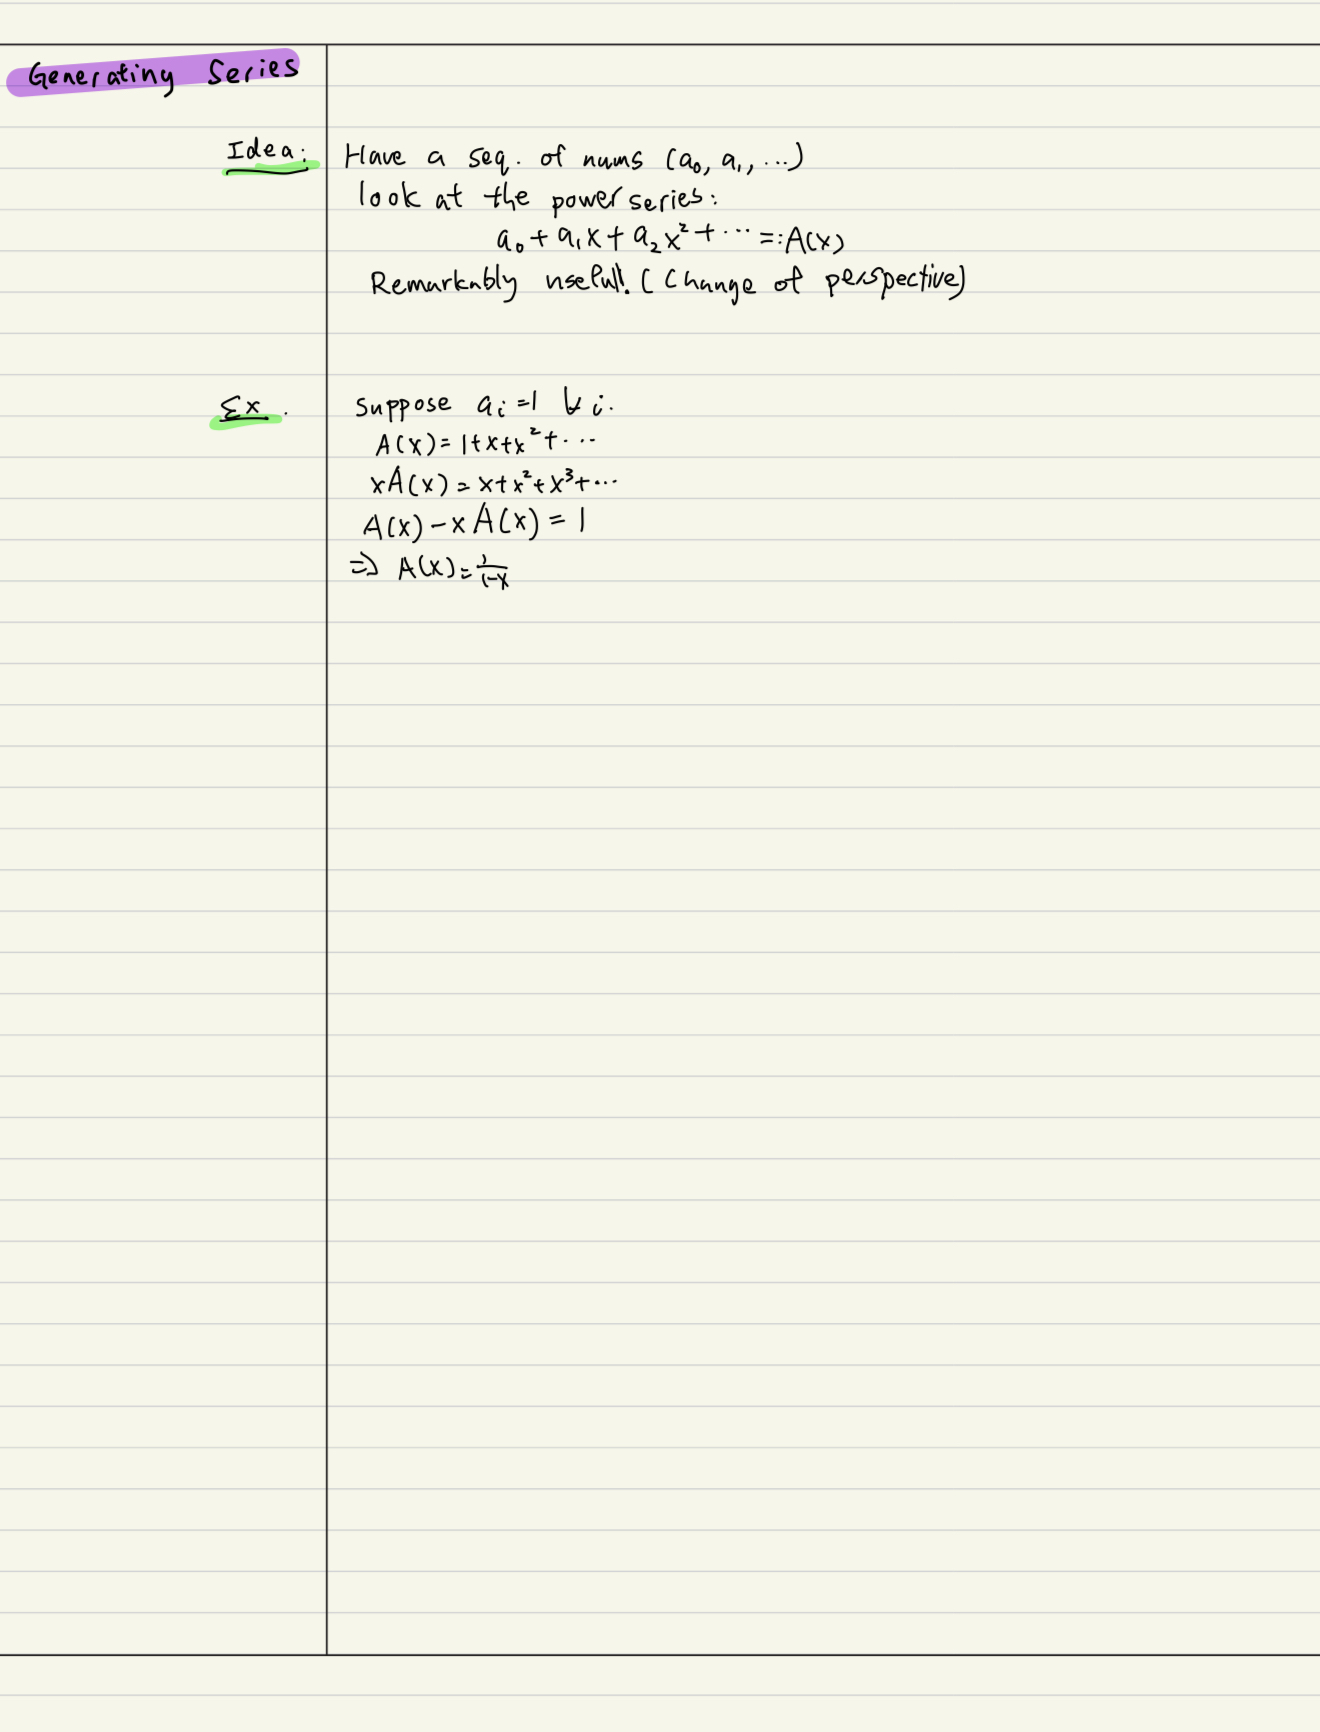 Generating Series
Idea:
Have a seq. of nums (a₀, a₁, ...)
look at the power series:
a₀ + a₁x + a₂x² + ⋯ =: A(x)
Remarkably useful! (Change of perspective)
Ex.
Suppose aᵢ = 1 ∀ i.
A(x) = 1+x+x²+⋯
xA(x) = x+x²+x³+⋯
A(x) - xA(x) = 1
⇒ A(x) = 1/(1-x)